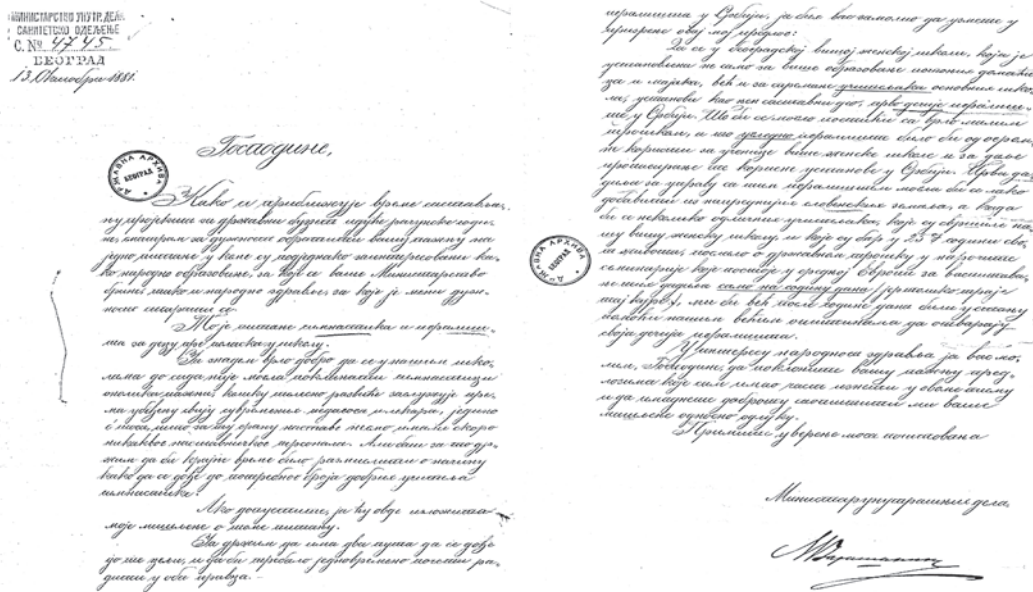 МИНИСТАРСТВО УНУТР. ДЕЛА
САНИТЕТСКО ОДЕЉЕЊЕ
С. № 4745
БЕОГРАД
13. Октобра 1881.
Господине,
ДРЖАВНА АРХИВА
БЕОГРАД
Како се приближује време састављању
државни буџет идуће рачунске годи-
не, сматрам за дужност обратити вашу пажњу на
једно питање у коме су подједнако заинтересовани ка-
ко народно образовање, за које се ваше Министарство
брине, тако и народно здравље, за које је мени дуж-
ност старати се.
То је питање гимнастика и игралиш-
та за децу пре поласка у школу.
Ја знадем врло добро да се у нашим шко-
лама до сада није могла поклањати гимнастици
онолика пажња, колику телесно развиће заслужује пре-
ма убеђењу свију савремених педагога и лекара, једино
с тога, што за ту грану наставе нисмо имали скоро
никаквог наставничког персонала. Али баш за то др-
жим да би крајње време било размислити о начину
како да се дође до потребног броја добрих учитеља
гимнастике.
Ако допустите, ја ћу овде изложити
моје мишљење о томе питању.
Ја држим да има два пута да се дође
до те цели, и да би требало једновремено почети ра-
дити у оба правца.
игралишта у Србији, ја бих вас замолио да узмете у
овај мој предлог:
Да се у београдској вишој женској школи, која је
установљена не само за више образовање потоњих домаћи-
ца и мајака, већ и за спремање учитељака основних шко-
ла, установи као њен саставни део, прво дечије игралиш-
те у Србији. То би се могло постићи са врло малим
трошком, а то угледно игралиште било би од огром-
не користи за ученице више женске школе и за даље
простирање те корисне установе у Србији. Прва да-
диља за управу са тим игралиштем могла би се лако
добавити из напреднијих словенских земаља, а када
би се неколико одличних учитељака, које су свршиле на-
шу вишу женску школу и које су бар у 23-ој години сво-
га живота, послало о државном трошку у нарочите
семинарије које постоје у средњој Европи за васпитава-
ње тих дадиља само на годину дана (јер толико траје
тај курс), ми би већ после године дана били у стању
помоћи нашим већим општинама да отварају
своја дечија игралишта.
ДРЖАВНА АРХИВА
БЕОГРАД
У интересу народнога здравља ја вас мо-
лим, Господине, да поклоните вашу пажњу пред-
лозима које сам имао част изнети у овоме акту
и да имаднете доброту саопштити ми ваше
мишљење односно одлуку.
Примите уверење мога поштовања
Министар унутрашњих дела,